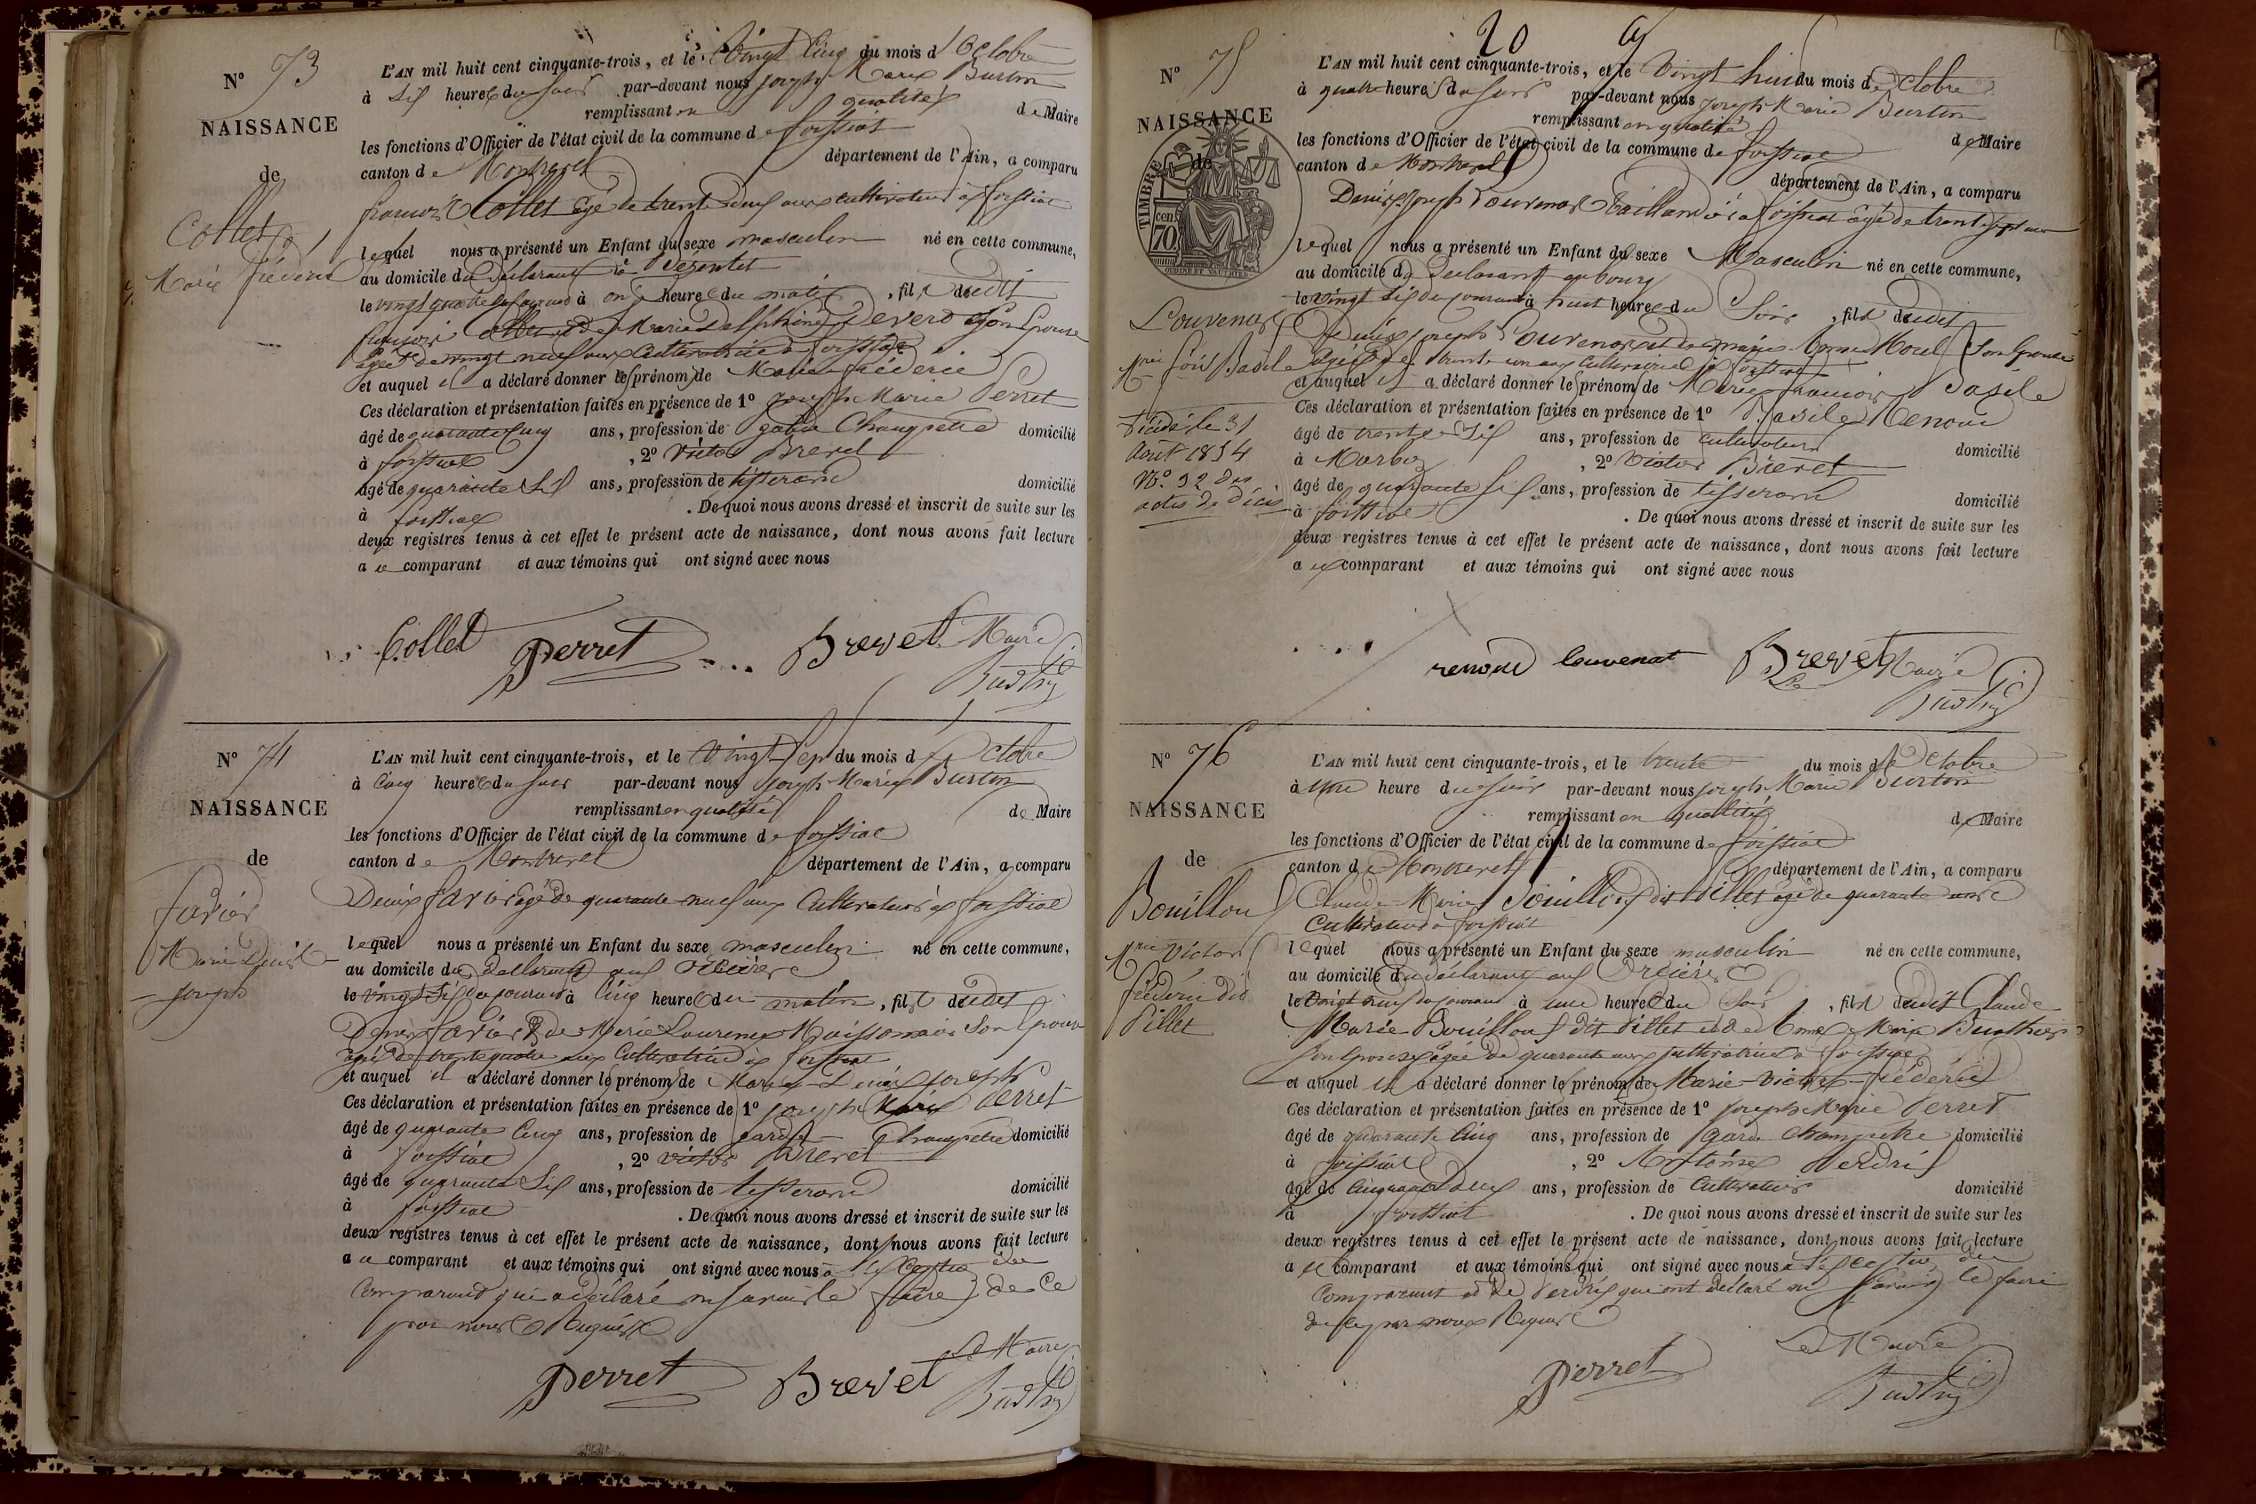 N° 73
NAISSANCE
de
Collet
Marie frédéric
L'AN mil huit cent cinquante-trois, et le Vingt Cinq du mois d'Octobre
à Six heures du soir par-devant nous joseph Marie Burtin
remplissant en qualité de Maire
les fonctions d'Officier de l'état civil de la commune de foissiat
canton de Montrevel département de l'Ain, a comparu
françois Collet âgé de trente neuf ans cultivateur à foissiat
lequel nous a présenté un Enfant du sexe masculin né en cette commune,
au domicile du déclarant à
le vingt quatre du courant à onze heures du matin, fils dudit
françois Collet et de Marie Delphine son Epouse
âgée de vingt neuf ans Cultivatrice à foissiat
et auquel il a déclaré donner les prénom de Marie frédéric
Ces déclaration et présentation faites en présence de 1° joseph Marie Perret
âgé de quarante Cinq ans, profession de garde Champêtre domicilié
à foissiat, 2° Victor Brevet
âgé de quarante Six ans, profession de tisserand domicilié
à foissiat. De quoi nous avons dressé et inscrit de suite sur les
deux registres tenus à cet effet le présent acte de naissance, dont nous avons fait lecture
au comparant et aux témoins qui ont signé avec nous
Collet Perret Brevet Maire
Burtin
N° 74
NAISSANCE
de
favier
Marie Denis
joseph
L'AN mil huit cent cinquante-trois, et le Vingt Sept du mois d'Octobre
à Cinq heures du soir par-devant nous joseph Marie Burtin
remplissant en qualité de Maire
les fonctions d'Officier de l'état civil de la commune de foissiat
canton de Montrevel département de l'Ain, a comparu
Denis favier âgé de quarante neuf ans Cultivateur à foissiat
lequel nous a présenté un Enfant du sexe masculin né en cette commune,
au domicile du Déclarant aux
le vingt Six du courant à Cinq heures du matin, fils dudit
Denis favier & de Marie Laurence son Epouse
âgée de trente quatre ans Cultivatrice à foissiat
et auquel il a déclaré donner le prénom de Marie-Denis joseph
Ces déclaration et présentation faites en présence de 1° joseph Marie Perret
âgé de quarante Cinq ans, profession de garde Champêtre domicilié
à foissiat, 2° victor Brevet
âgé de quarante Six ans, profession de tisserand domicilié
à foissiat. De quoi nous avons dressé et inscrit de suite sur les
deux registres tenus à cet effet le présent acte de naissance, dont nous avons fait lecture
au comparant et aux témoins qui ont signé avec nous à l'exception du
Comparant qui a déclaré ne savoir le faire de ce
par nous Requis
Perret Brevet Le Maire
Burtin
20
N° 75
NAISSANCE
de
TIMBRE
cen
70
Louvenat
Mrie fçois Basile
Décédé le 31
Août 1854
N°. 92 des
actes de décès
L'AN mil huit cent cinquante-trois, et le Vingt huit du mois d'Octobre
à quatre heures du soir par-devant nous joseph Marie Burtin
remplissant en qualité de Maire
les fonctions d'Officier de l'état civil de la commune de foissiat
canton de Montrevel département de l'Ain, a comparu
Denis joseph Louvenat Taillandier à foissiat âgé de trente sept ans
lequel nous a présenté un Enfant du sexe Masculin né en cette commune,
au domicile du déclarant au bourg
le vingt Six du courant à huit heures du Soir, fils dudit
Denis joseph Louvenat et de Marie Morel Son Epouse
âgée de trente un ans Cultivatrice à foissiat
et auquel il a déclaré donner le prénom de Marie françois Basile
Ces déclaration et présentation faites en présence de 1° Basile Renoud
âgé de trente Six ans, profession de cultivateur domicilié
à Marboz, 2° Victor Brevet
âgé de quarante Six ans, profession de tisserand domicilié
à foissiat. De quoi nous avons dressé et inscrit de suite sur les
deux registres tenus à cet effet le présent acte de naissance, dont nous avons fait lecture
au comparant et aux témoins qui ont signé avec nous
renoud louvenat Brevet Le Maire
Burtin
N° 76
NAISSANCE
de
Bouilloux
Mrie Victor
frédéric dit
Pillet
L'AN mil huit cent cinquante-trois, et le trente du mois d'Octobre
à Une heure du soir par-devant nous joseph Marie Burtin
remplissant en qualité de Maire
les fonctions d'Officier de l'état civil de la commune de foissiat
canton de Montrevel département de l'Ain, a comparu
Claude Marie Bouilloux dit Pillet âgé de quarante ans
Cultivateur à foissiat
lequel nous a présenté un Enfant du sexe masculin né en cette commune,
au domicile du déclarant aux
le vingt neuf du courant à une heure du Soir, fils dudit Claude
Marie Bouilloux dit Pillet et de Marie
Son Epouse âgée de quarante ans Cultivatrice à foissiat
et auquel il a déclaré donner le prénom de Marie-victor-frédéric
Ces déclaration et présentation faites en présence de 1° joseph Marie Perret
âgé de quarante Cinq ans, profession de garde champêtre domicilié
à foissiat, 2° Antoine
âgé de Cinquante deux ans, profession de Cultivateur domicilié
à foissiat. De quoi nous avons dressé et inscrit de suite sur les
deux registres tenus à cet effet le présent acte de naissance, dont nous avons fait lecture
au comparant et aux témoins qui ont signé avec nous à l'exception du
Comparant et de qui ont déclaré ne savoir le faire
de ce par nous Requis
Perret Le Maire
Burtin